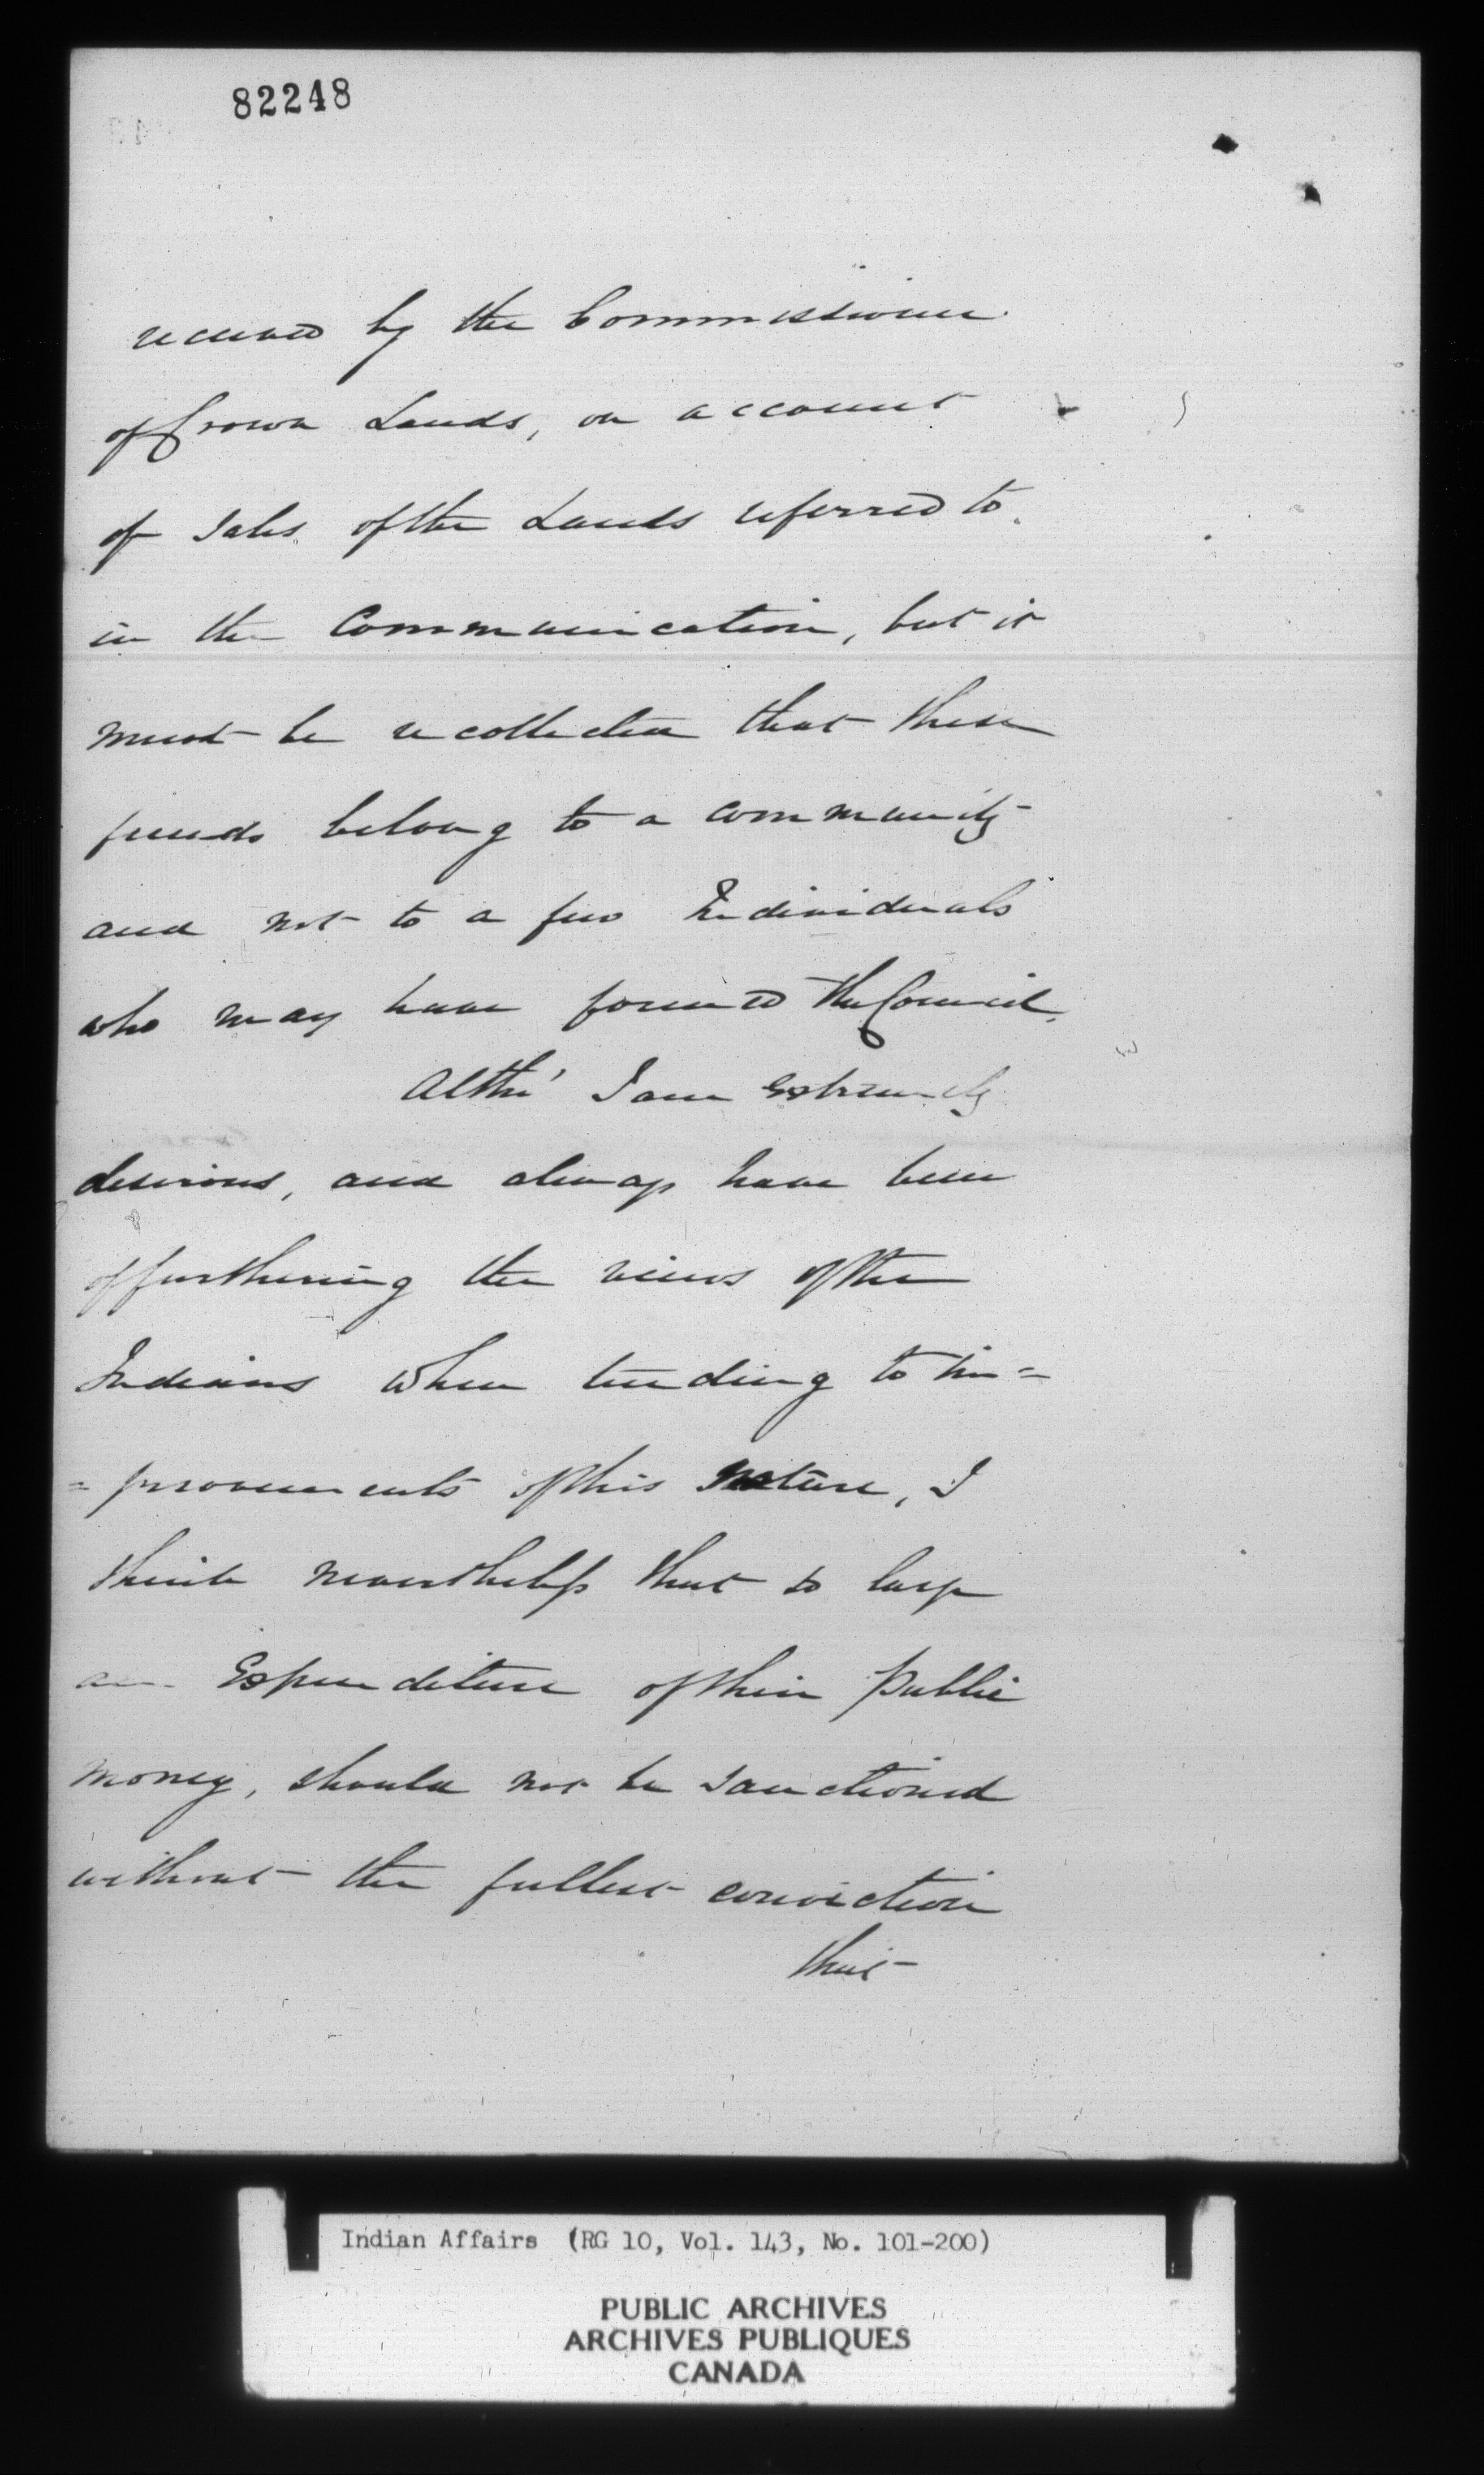 82248
received by the Commissioner
of Crown Lands, on account
of Sales of the Lands referred to
in the Communication, but it
must be recollected that these
funds belong to a community
and not to a few Individuals
who may have formed the Council.
Altho' I am Extremely
desirous, and always have been
of furthering the views of the
Indians when tending to im=
=provements of this nature, I
think nevertheless that so large
an Expenditure of their public
money, should not be sanctioned
without the fullest conviction
that
Indian Affairs (RG 10, Vol. 143, No. 101-200)
PUBLIC ARCHIVES
ARCHIVES PUBLIQUES
CANADA